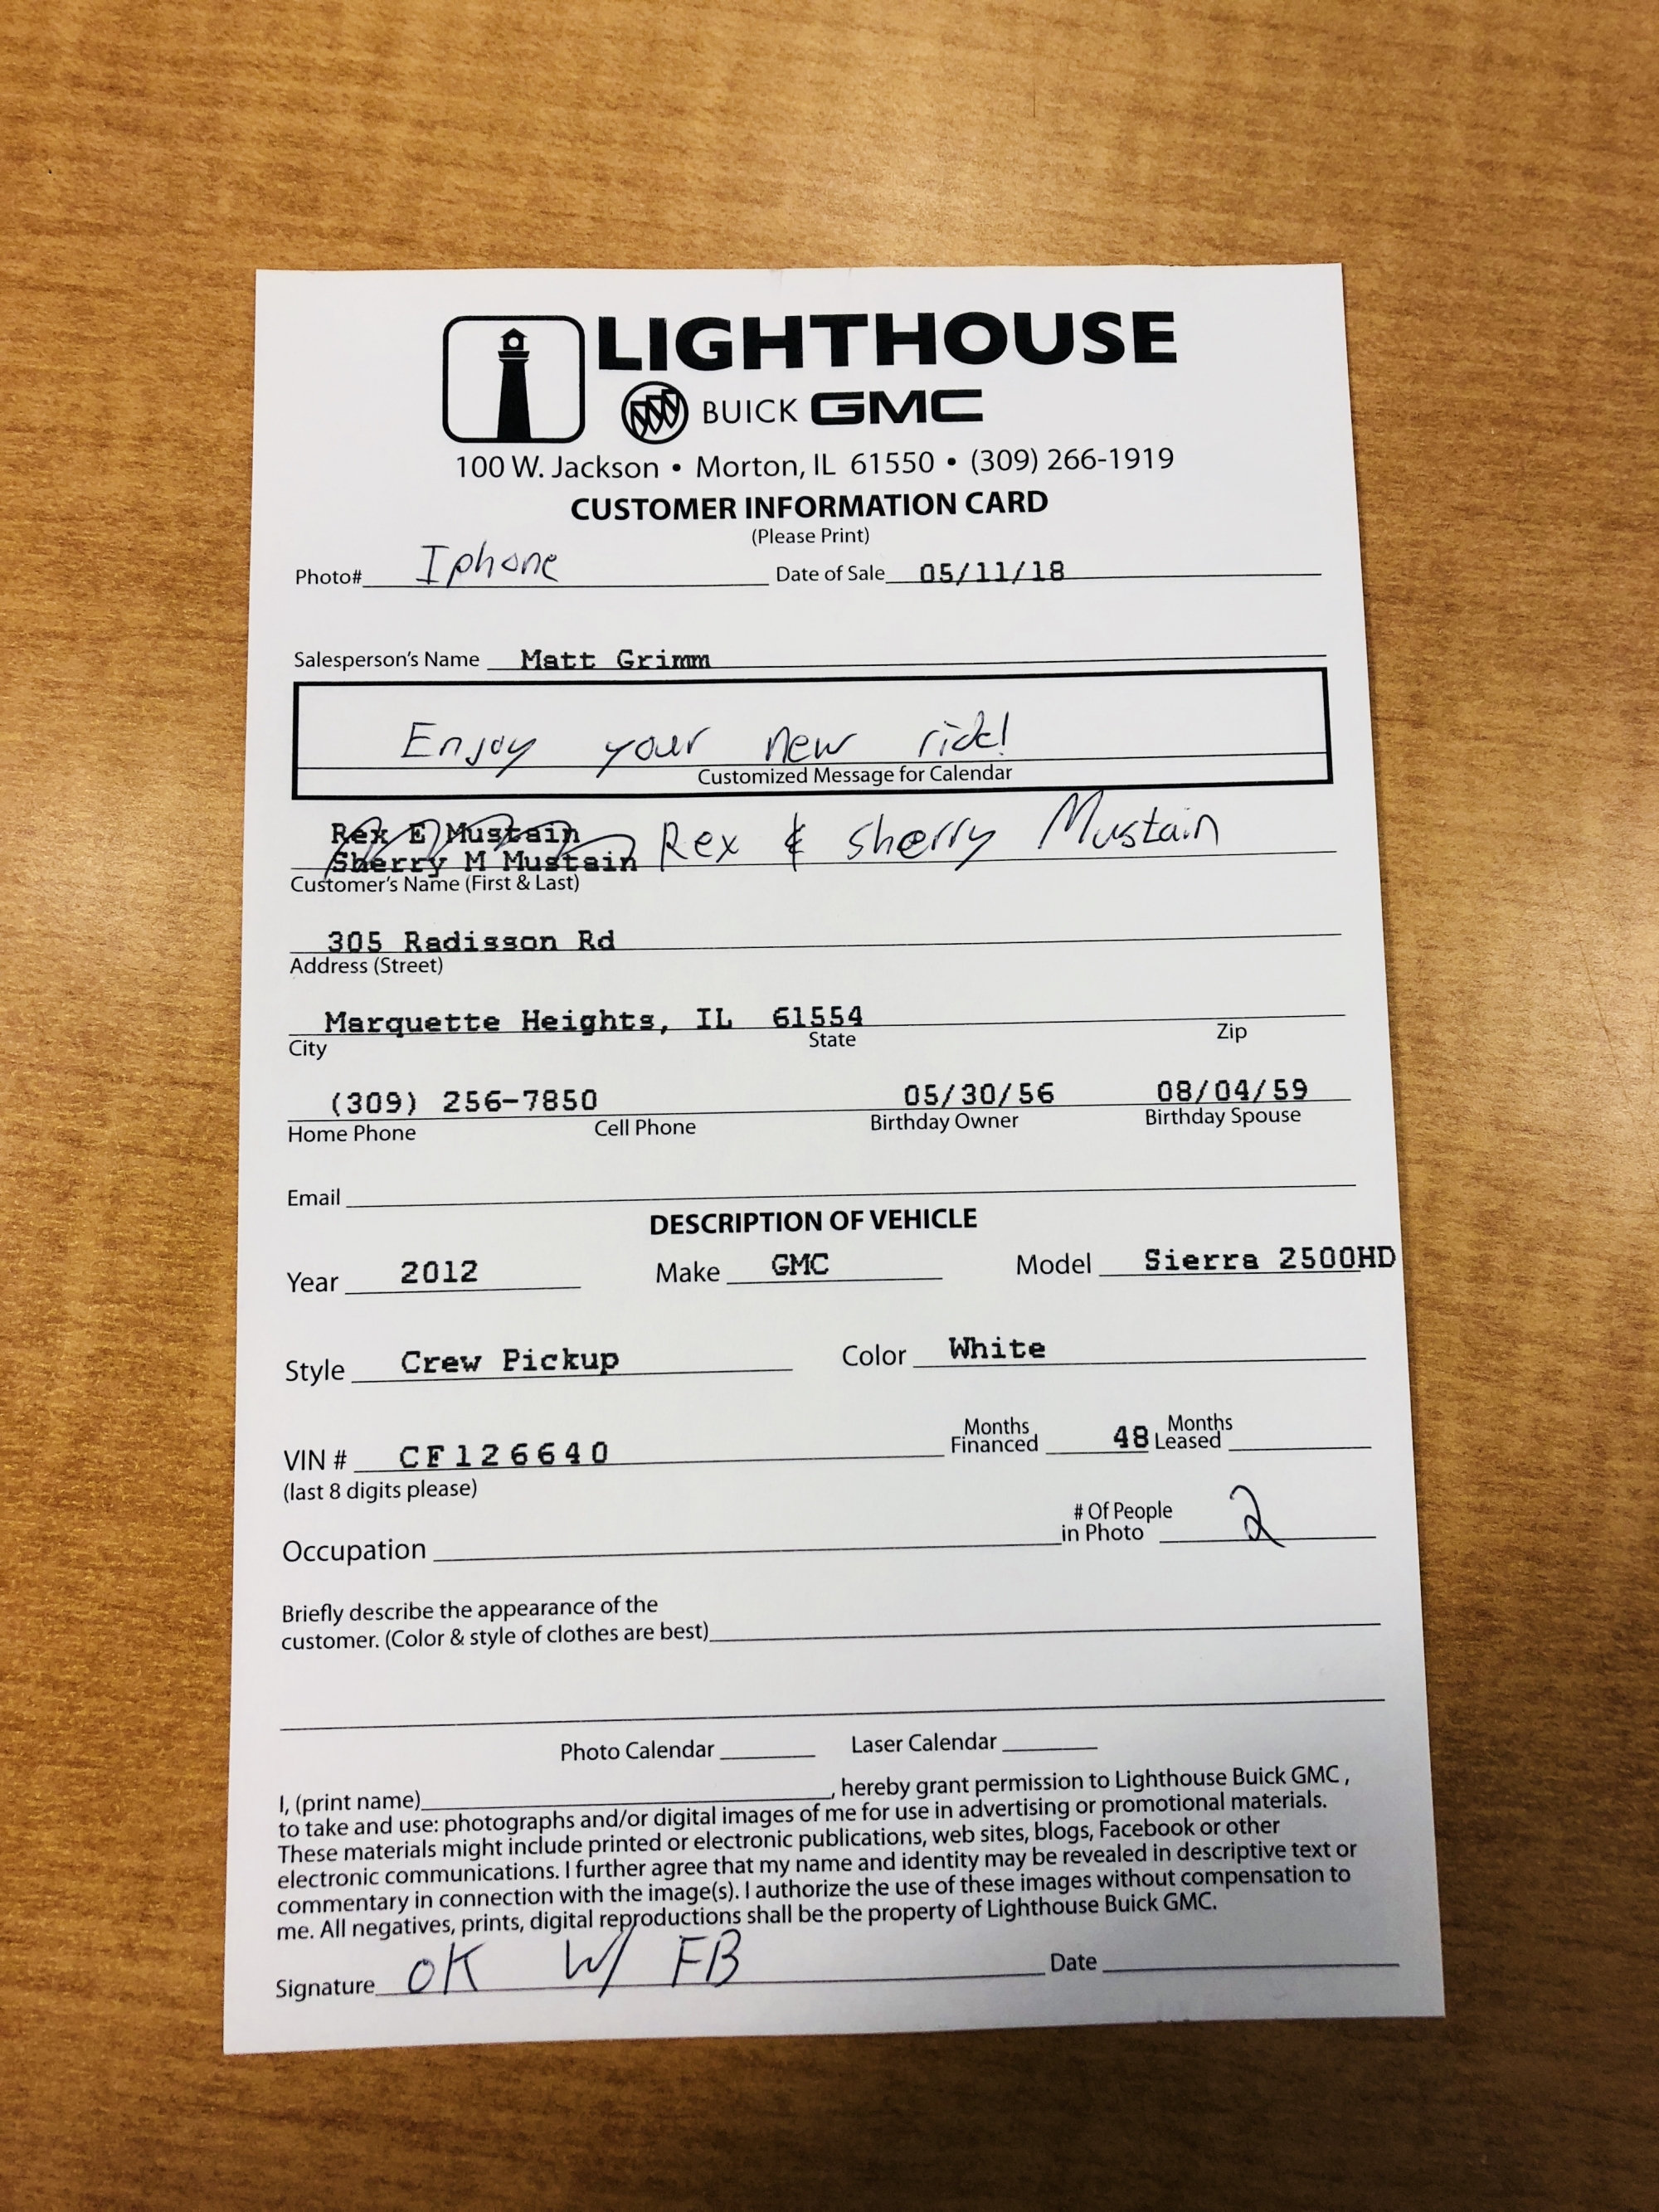 LIGHTHOUSE
BUICK GMC
100 W. Jackson • Morton, IL 61550 • (309) 266-1919
CUSTOMER INFORMATION CARD
(Please Print)
Photo# Iphone Date of Sale 05/11/18
Salesperson's Name Matt Grimm
Enjoy your new ride!
Customized Message for Calendar
Rex E Mustain
Sherry M Mustain Rex & Sherry Mustain
Customer's Name (First & Last)
305 Radisson Rd
Address (Street)
Marquette Heights, IL 61554
City State Zip
(309) 256-7850 05/30/56 08/04/59
Home Phone Cell Phone Birthday Owner Birthday Spouse
Email
DESCRIPTION OF VEHICLE
Year 2012 Make GMC Model Sierra 2500HD
Style Crew Pickup Color White
VIN # CF126640 Months Financed 48 Months Leased
(last 8 digits please)
Occupation # Of People in Photo 2
Briefly describe the appearance of the
customer. (Color & style of clothes are best)
Photo Calendar Laser Calendar
I, (print name) , hereby grant permission to Lighthouse Buick GMC ,
to take and use: photographs and/or digital images of me for use in advertising or promotional materials.
These materials might include printed or electronic publications, web sites, blogs, Facebook or other
electronic communications. I further agree that my name and identity may be revealed in descriptive text or
commentary in connection with the image(s). I authorize the use of these images without compensation to
me. All negatives, prints, digital reproductions shall be the property of Lighthouse Buick GMC.
Signature OK W/ FB Date